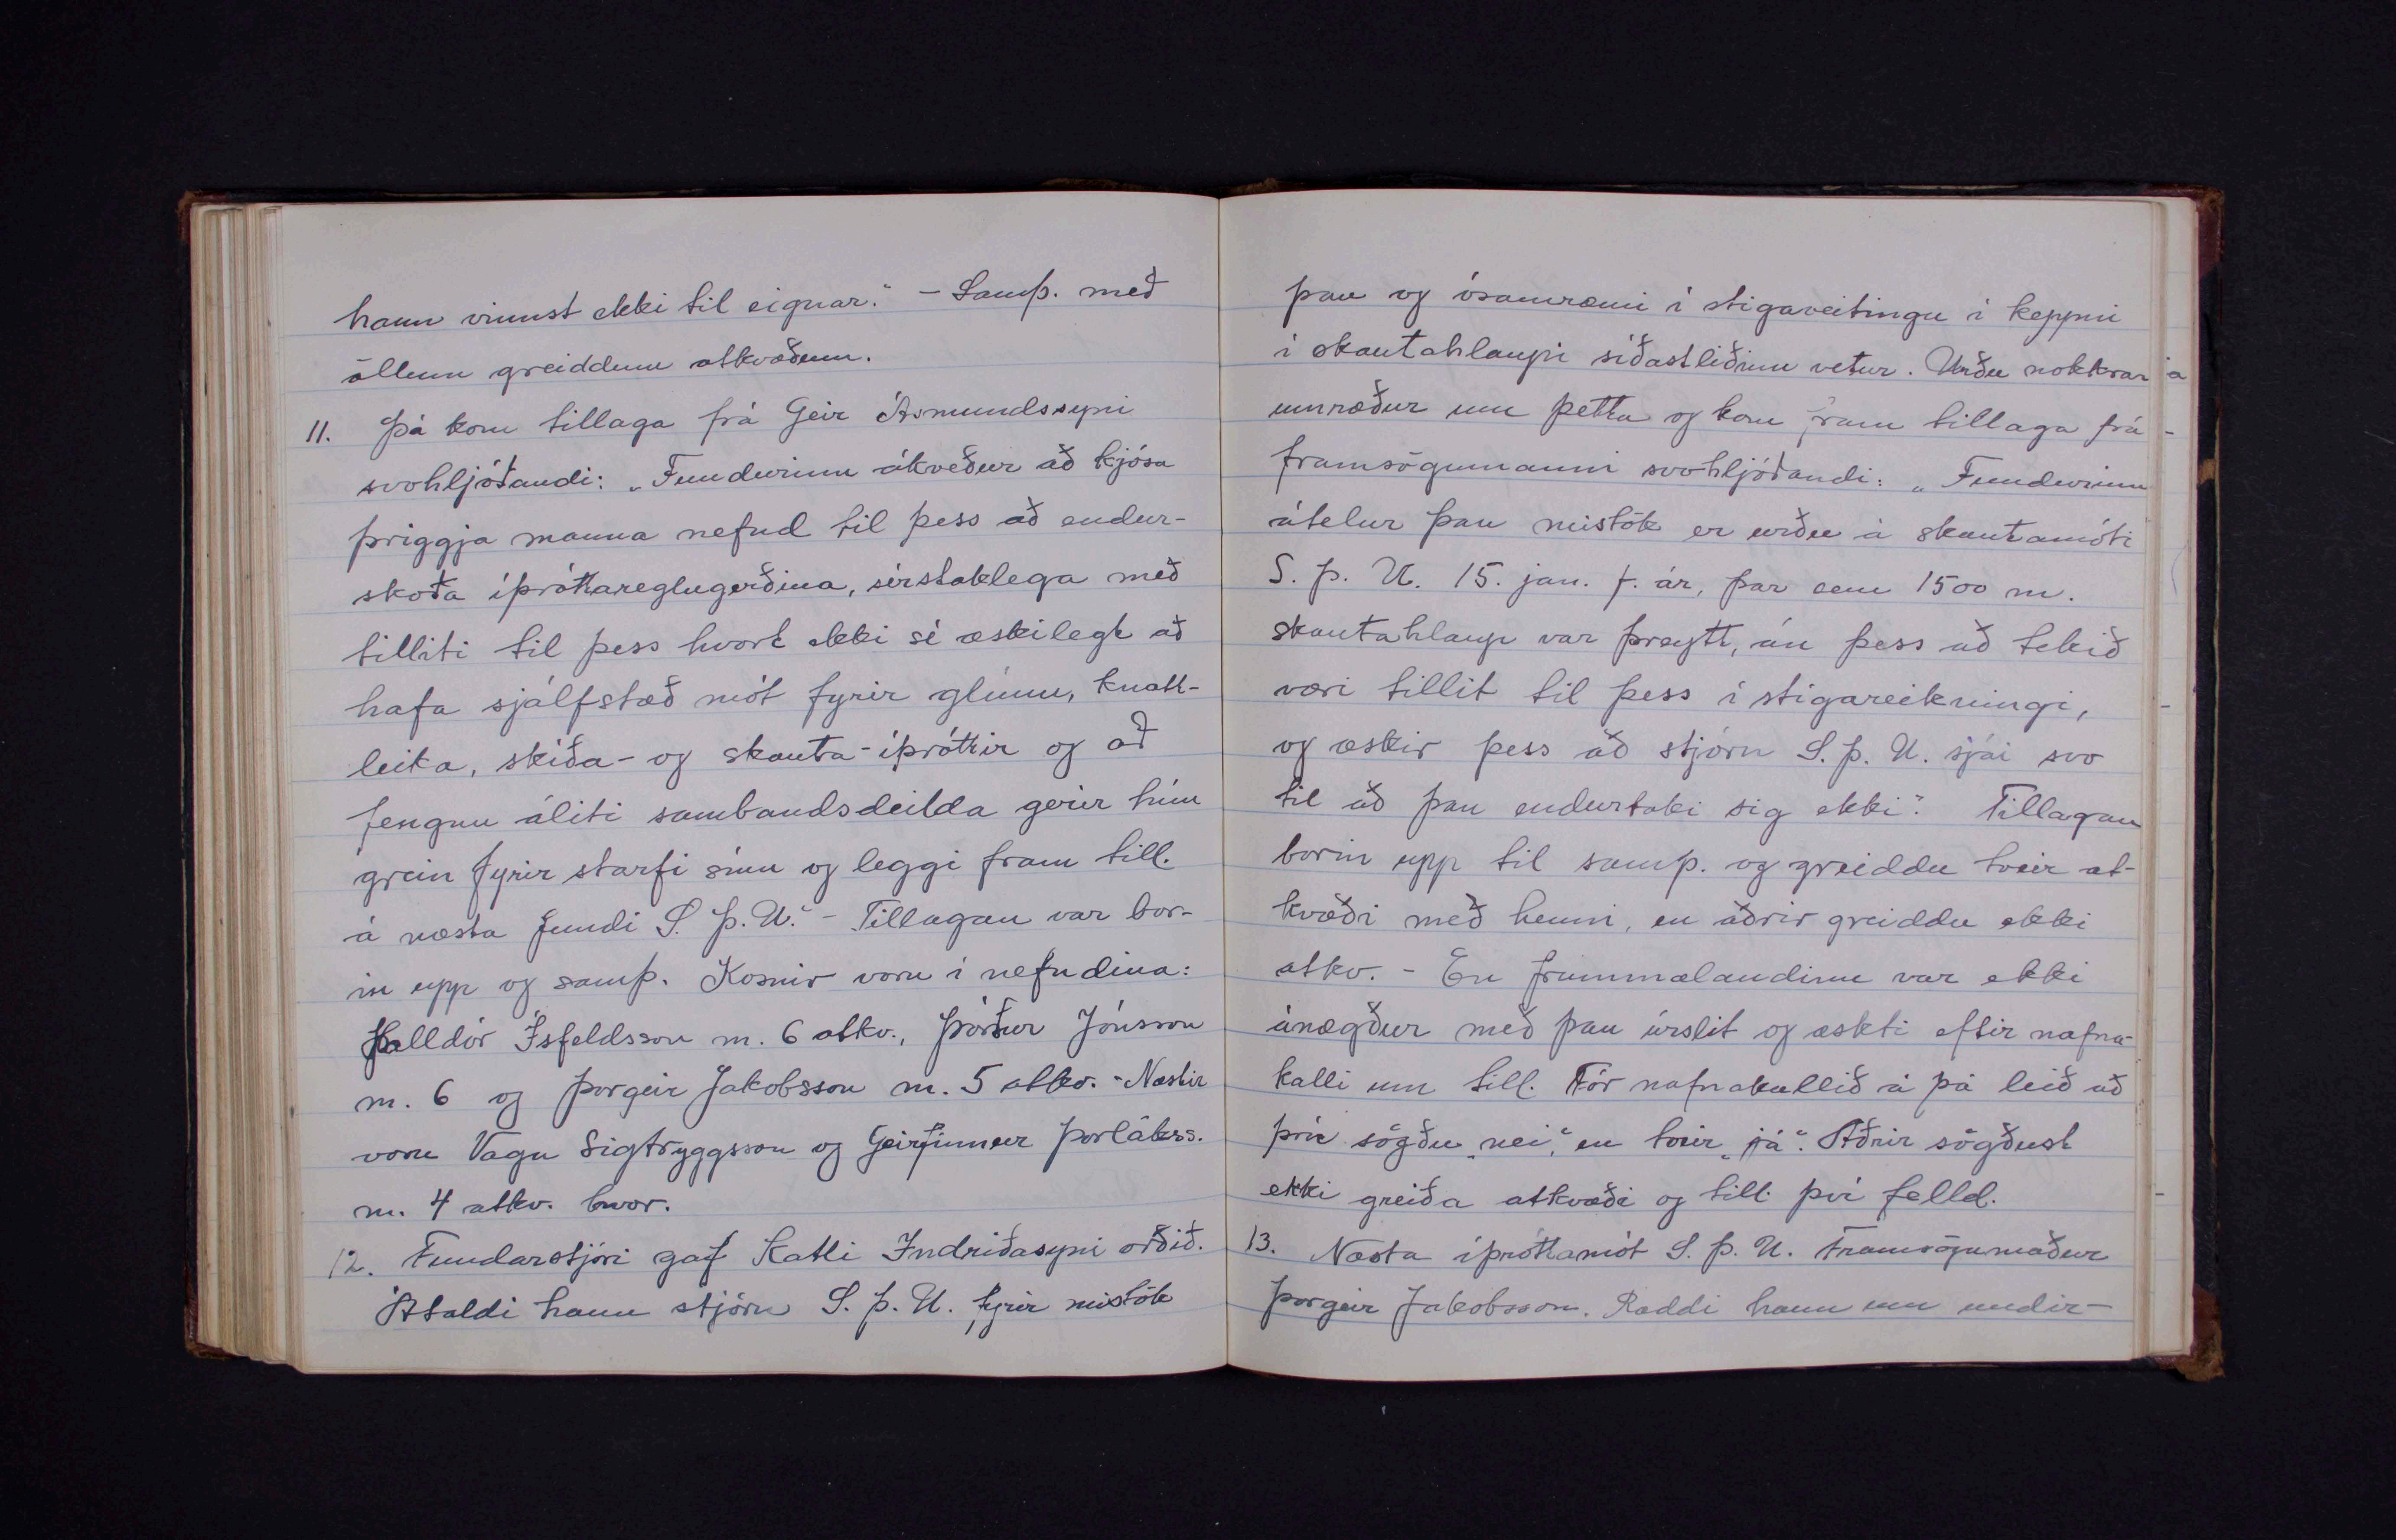 hann vinnst ekki til eignar." - Samþ. með
öllum greiddum atkvæðum.
11. Þá kom tillaga frá Geir Ásmundssyni
svohljóðandi: „Fundurinn ákveður að kjósa
þriggja manna nefnd til þess að endur-
skoða íþróttareglugerðina, sérstaklega með
tilliti til þess hvort ekki sé æskilegt að
hafa sjálfstæð mót fyrir glímu, knatt-
leika, skíða- og skauta-íþróttir og að
fengnu áliti sambandsdeilda gerir hún
grein fyrir starfi sínu og leggi fram till.
á næsta fundi S. Þ. U." - Tillagan var bor-
in upp og samþ. Kosnir voru í nefndina:
Halldór Ísfeldsson m. 6 atkv., Þórður Jónsson
m. 6 og Þorgeir Jakobsson m. 5 atkv. - Næstir
voru Vagn Sigtryggsson og Geirfinnur Þorlákss.
m. 4 atkv. hvor.
12. Fundarstjóri gaf Katli Indriðasyni orðið.
Átaldi hann stjórn S. Þ. U. fyrir mistök
þau og ósamræmi í stigaveitingu í keppni
í skautahlaupi síðastliðinn vetur. Urðu nokkrar
umræður um þetta og kom fram tillaga frá
framsögumanni svohljóðandi: „Fundurinn
átelur þau mistök er urðu á skautamóti
S. Þ. U. 15. jan. f. ár, þar sem 1500 m.
skautahlaup var þreytt, án þess að tekið
væri tillit til þess í stigareikningi,
og æskir þess að stjórn S. Þ. U. sjái svo
til að þau endurtaki sig ekki". Tillagan
borin upp til samþ. og greiddu tveir at-
kvæði með henni, en aðrir greiddu ekki
atkv. - En frummælandinn var ekki
ánægður með þau úrslit og æskti eftir nafna-
kalli um till. Fór nafnakallið á þá leið að
þrír sögðu „nei", en tveir „já". Aðrir sögðust
ekki greiða atkvæði og till. því felld.
13. Næsta íþróttamót S. Þ. U. Framsögumaður
Þorgeir Jakobsson. Ræddi hann um undir-